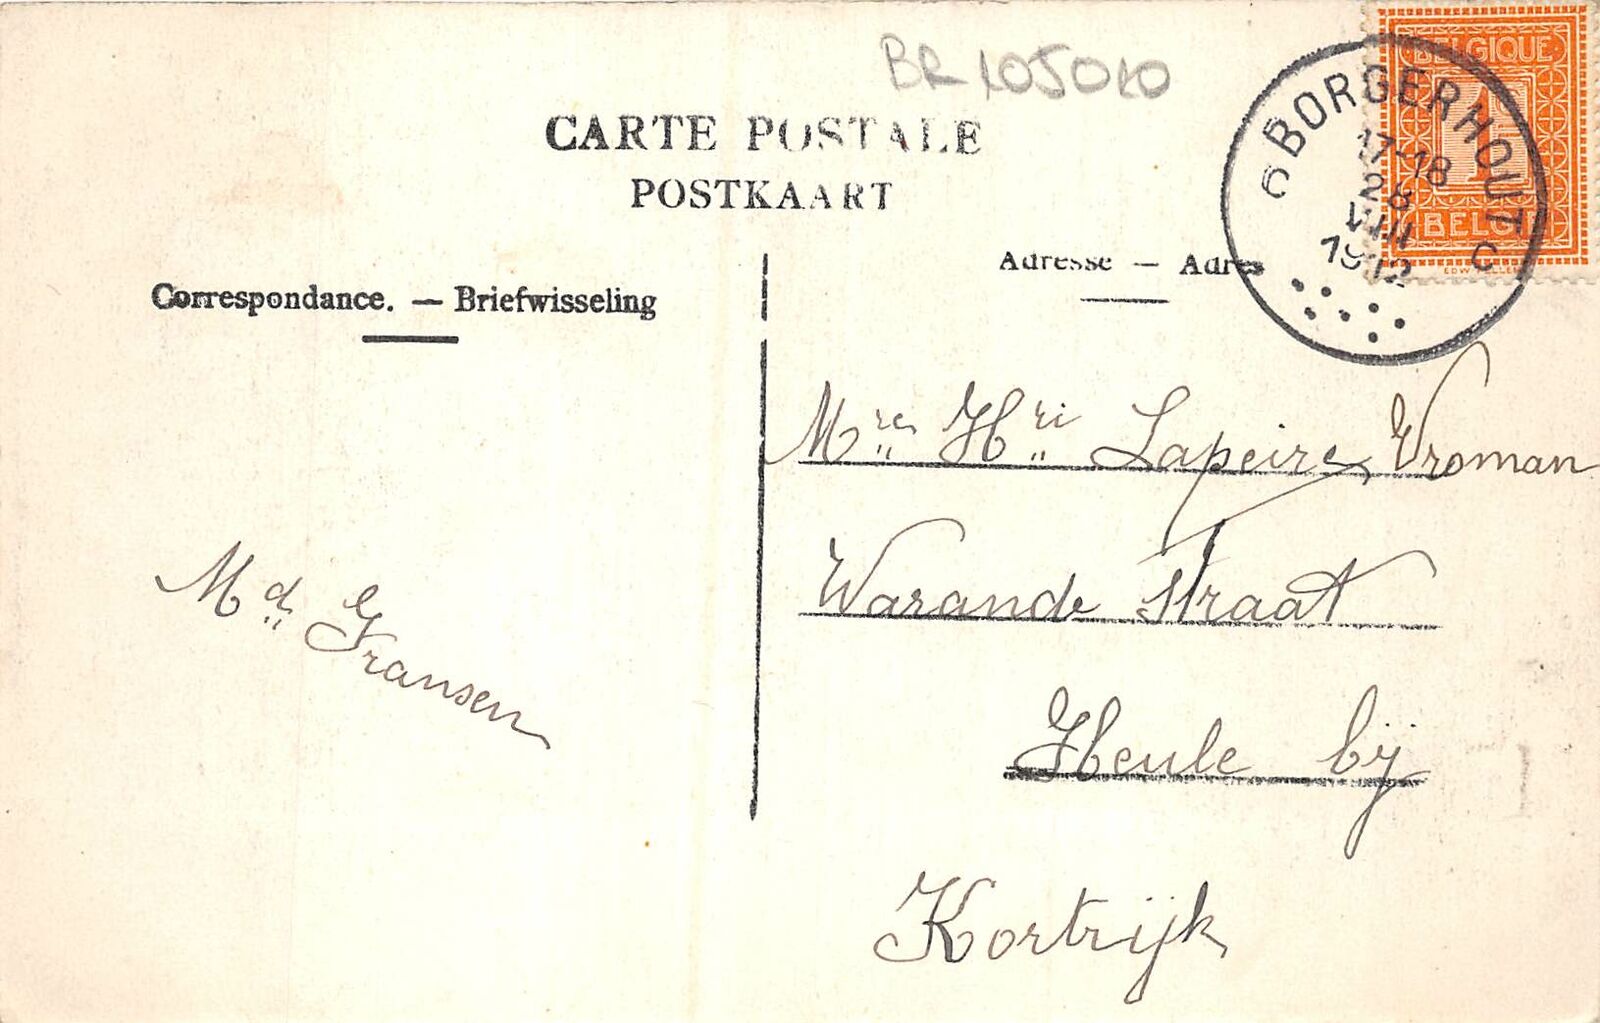 BR 105010
CARTE POSTALE
POSTKAART
Correspondance. — Briefwisseling
Adresse — Adres
BELGIQUE
1
BELGIË
C BORGERHOUT C
17-18
28
VIII
1912
Mre Hri Lapeire Vroman
Warande straat
Heule bij
Kortrijk
Md Fransen